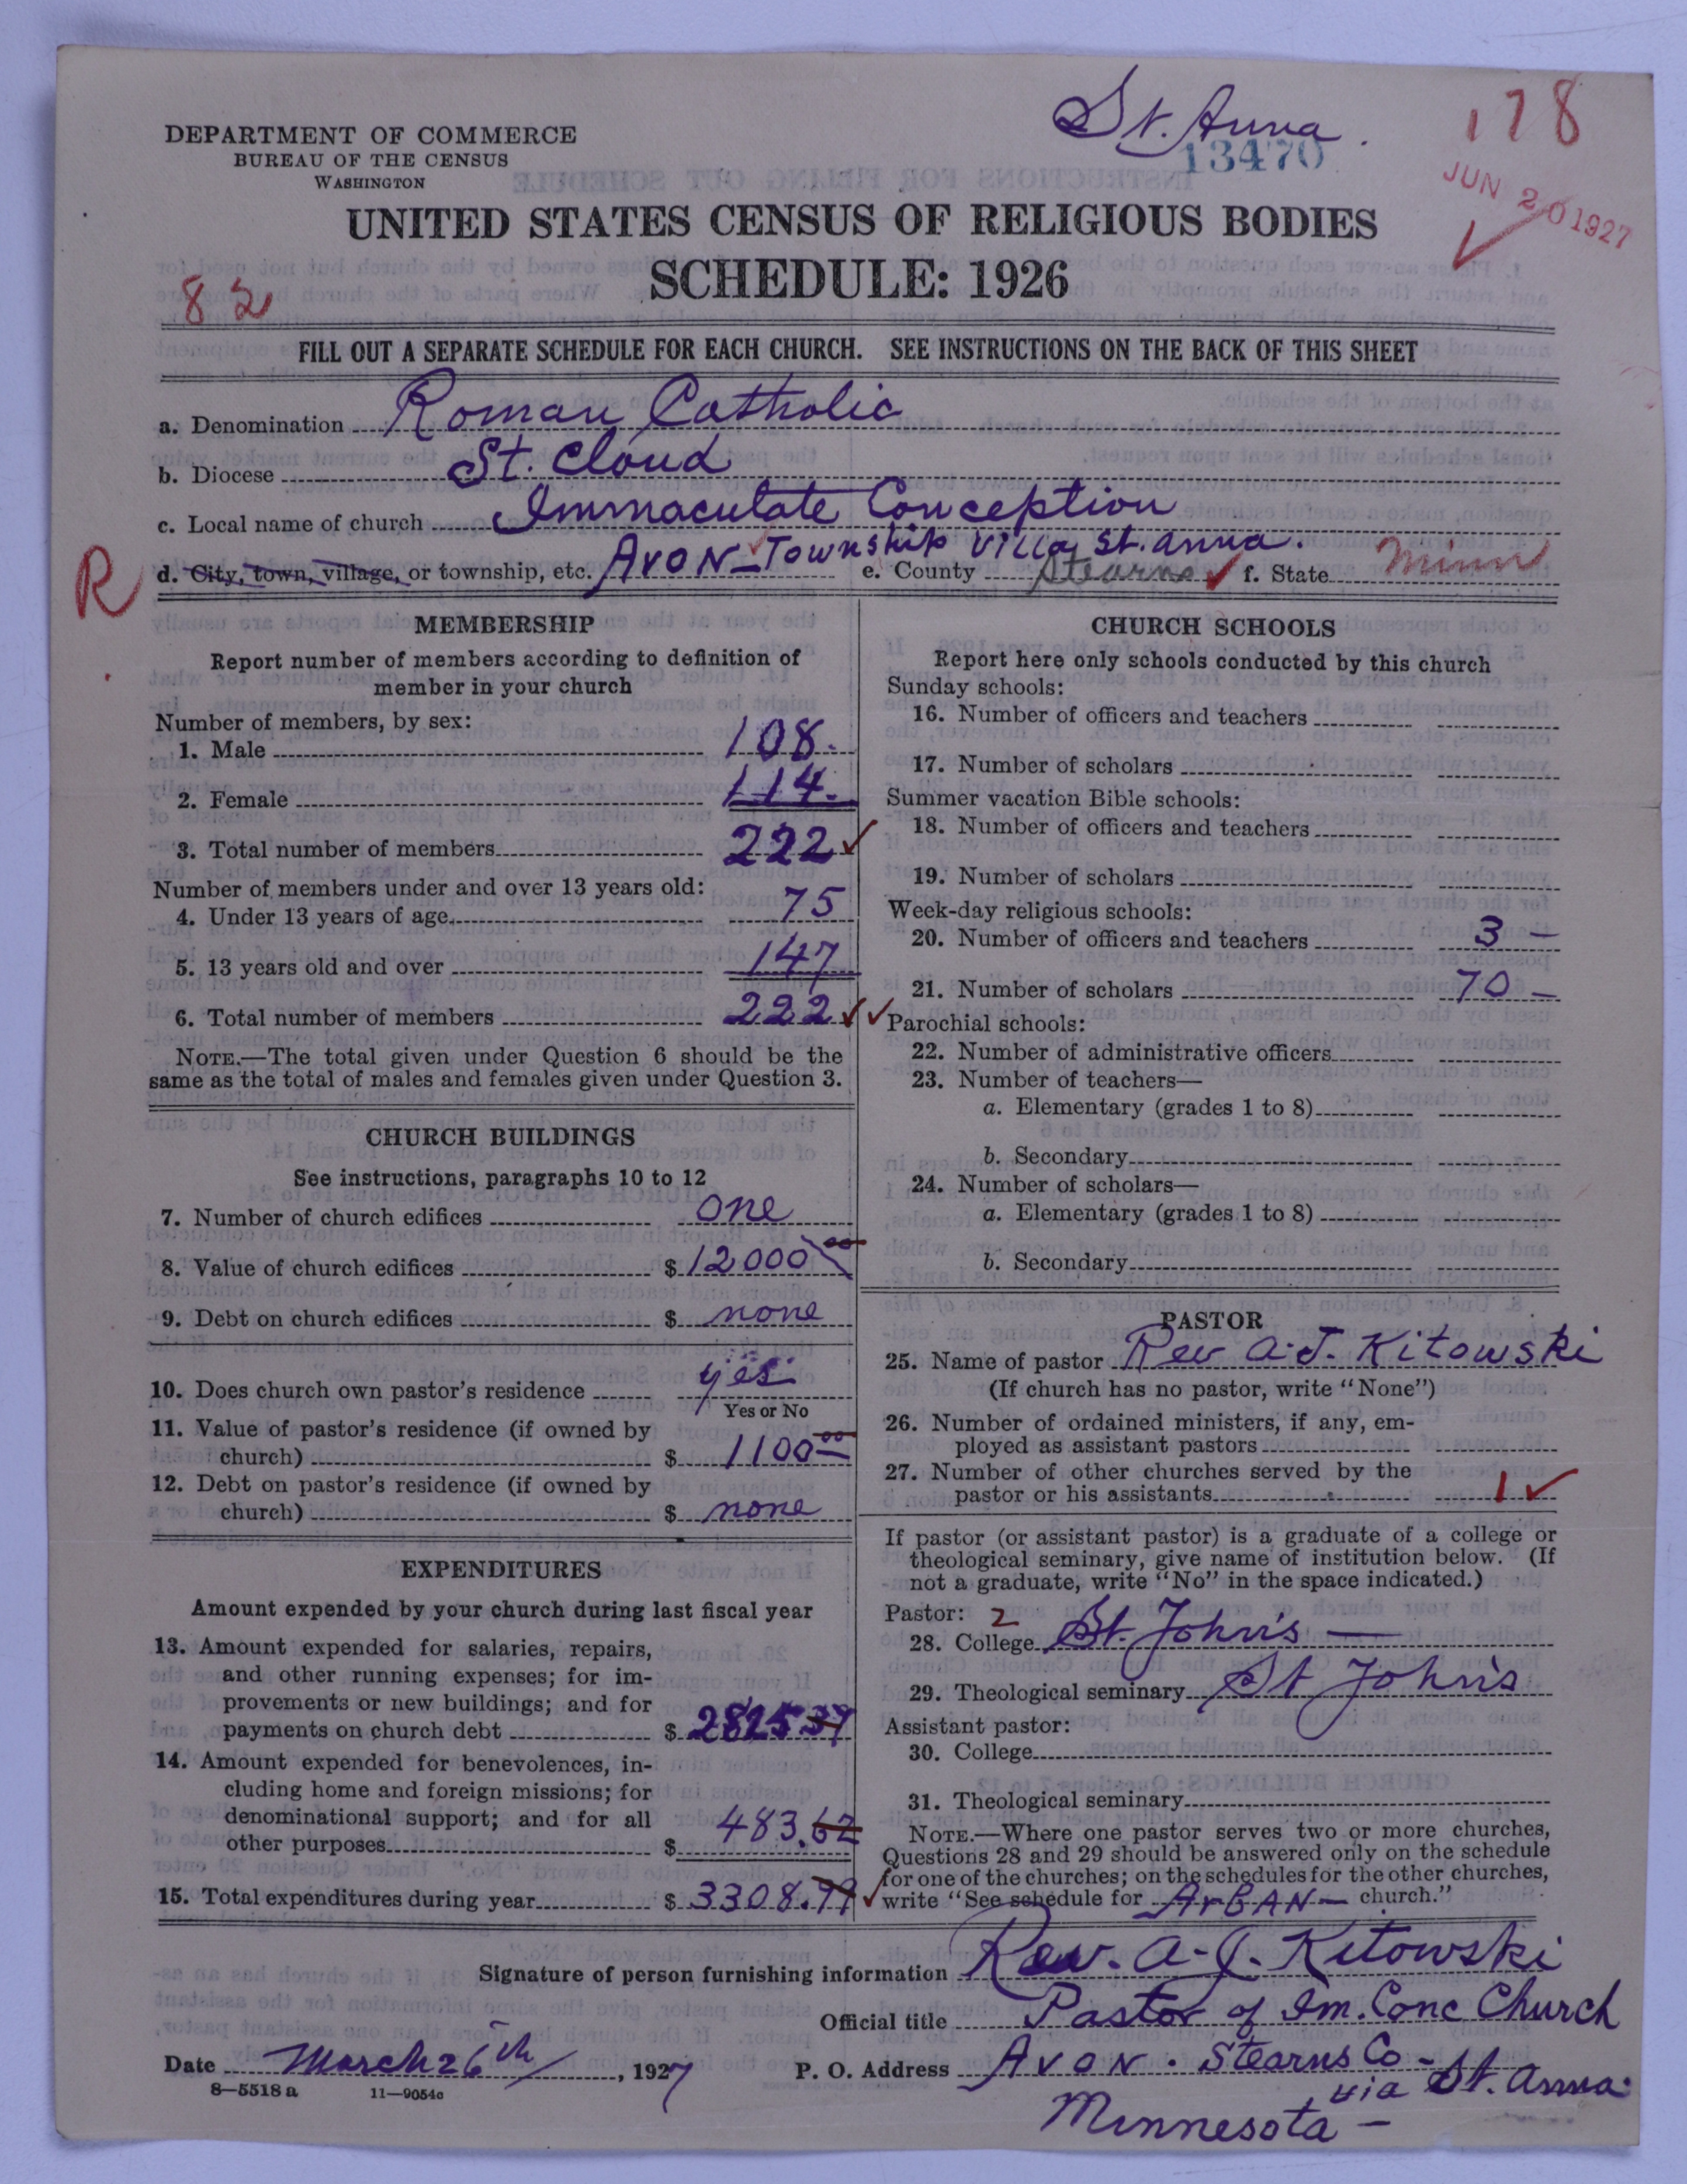 St. Anna.
178
13470
JUN 20 1927
DEPARTMENT OF COMMERCE
BUREAU OF THE CENSUS
WASHINGTON
UNITED STATES CENSUS OF RELIGIOUS BODIES
SCHEDULE: 1926
82
FILL OUT A SEPARATE SCHEDULE FOR EACH CHURCH. SEE INSTRUCTIONS ON THE BACK OF THIS SHEET
a. Denomination Roman Catholic
b. Diocese St. Cloud
c. Local name of church Immaculate Conception
R
d. City, town, village, or township, etc. Avon Township Villa St. Anna. e. County Stearns f. State Minn
MEMBERSHIP
Report number of members according to definition of
member in your church
Number of members, by sex:
1. Male 108.
2. Female 114.
3. Total number of members 222
Number of members under and over 13 years old:
4. Under 13 years of age 75
5. 13 years old and over 147
6. Total number of members 222
NOTE.—The total given under Question 6 should be the
same as the total of males and females given under Question 3.
CHURCH BUILDINGS
See instructions, paragraphs 10 to 12
7. Number of church edifices one
8. Value of church edifices $ 12000 00
9. Debt on church edifices $ none
10. Does church own pastor's residence yes
Yes or No
11. Value of pastor's residence (if owned by
church) $ 1100 00
12. Debt on pastor's residence (if owned by
church) $ none
EXPENDITURES
Amount expended by your church during last fiscal year
13. Amount expended for salaries, repairs,
and other running expenses; for im-
provements or new buildings; and for
payments on church debt $ 2825 37
14. Amount expended for benevolences, in-
cluding home and foreign missions; for
denominational support; and for all
other purposes $ 483.62
15. Total expenditures during year $ 3308.99
CHURCH SCHOOLS
Report here only schools conducted by this church
Sunday schools:
16. Number of officers and teachers
17. Number of scholars
Summer vacation Bible schools:
18. Number of officers and teachers
19. Number of scholars
Week-day religious schools:
20. Number of officers and teachers 3 —
21. Number of scholars 70 —
Parochial schools:
22. Number of administrative officers
23. Number of teachers—
a. Elementary (grades 1 to 8)
b. Secondary
24. Number of scholars—
a. Elementary (grades 1 to 8)
b. Secondary
PASTOR
25. Name of pastor Rev A. J. Kitowski
(If church has no pastor, write "None")
26. Number of ordained ministers, if any, em-
ployed as assistant pastors
27. Number of other churches served by the
pastor or his assistants 1
If pastor (or assistant pastor) is a graduate of a college or
theological seminary, give name of institution below. (If
not a graduate, write "No" in the space indicated.)
Pastor: 2
28. College St. John's —
29. Theological seminary St John's
Assistant pastor:
30. College
31. Theological seminary
NOTE.—Where one pastor serves two or more churches,
Questions 28 and 29 should be answered only on the schedule
for one of the churches; on the schedules for the other churches,
write "See schedule for ArBAN — church."
Signature of person furnishing information Rev. A. J. Kitowski
Official title Pastor of Im. Conc Church
Date March 26th, 1927 P. O. Address Avon. Stearns Co —
via St. Anna
8—5518 a 11—9054c
Minnesota —